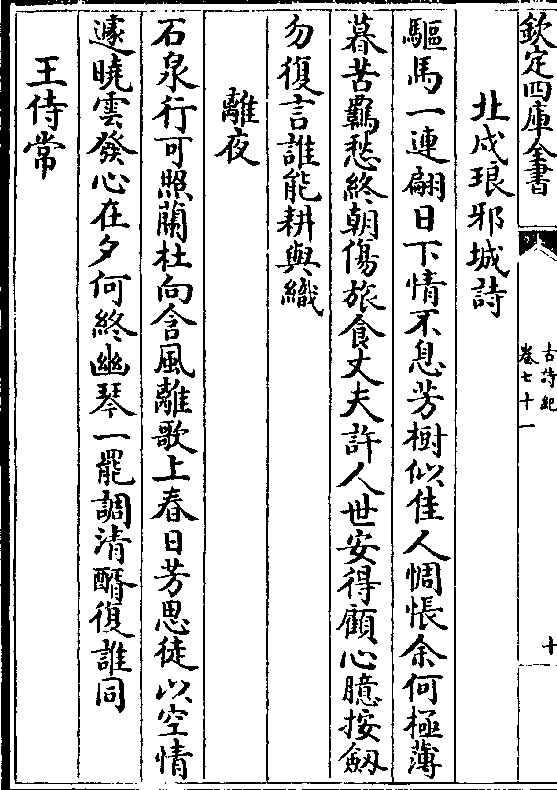 欽定四庫全書
古詩紀
卷七十一
十
北戍琅邪城詩
驅馬一連翩日下情不息芳樹似佳人惆悵余何極薄
暮苦羈愁終朝傷旅食丈夫許人世安得顧心臆按劔
勿復言誰能耕與織
離夜
石泉行可照蘭杜向含風離歌上春日芳思徒以空情
遽曉雲發心在夕何終幽琴一罷調清醑復誰同
王侍常